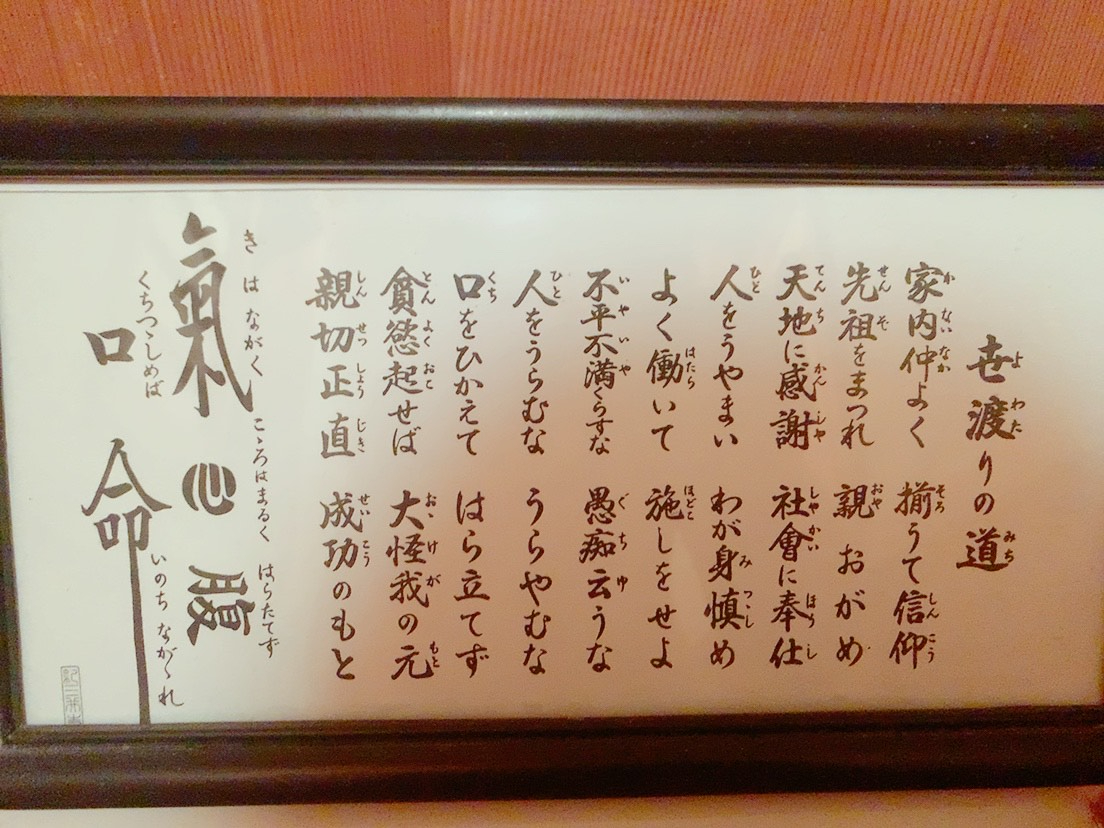 世渡りの道
家内仲よく 揃うて信仰
先祖をまつれ 親おがめ
天地に感謝 社會に奉仕
人をうやまい わが身慎め
よく働いて 施しをせよ
不平不満くらすな 愚痴云うな
人をうらむな うらやむな
口をひかえて はら立てず
貪慾起せば 大怪我の元
親切正直 成功のもと
きはながく こゝろはまるく はらたてず
氣 心 腹
くちつゝしめば いのちながゝれ
口 命